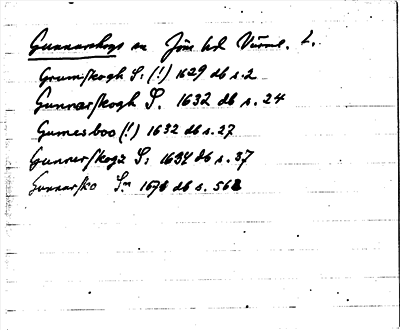 Gunnarskogs sn Jösse hd Värml. l.
Grumskogh S: (!) 1629 db s. 2
Gunnarskogh S. 1632 db s. 24
Gumesboo (!) 1632 db s. 27
Gunnerskogz S: 1634 db s. 37
Gunnarsko Sn 1676 db s. 562